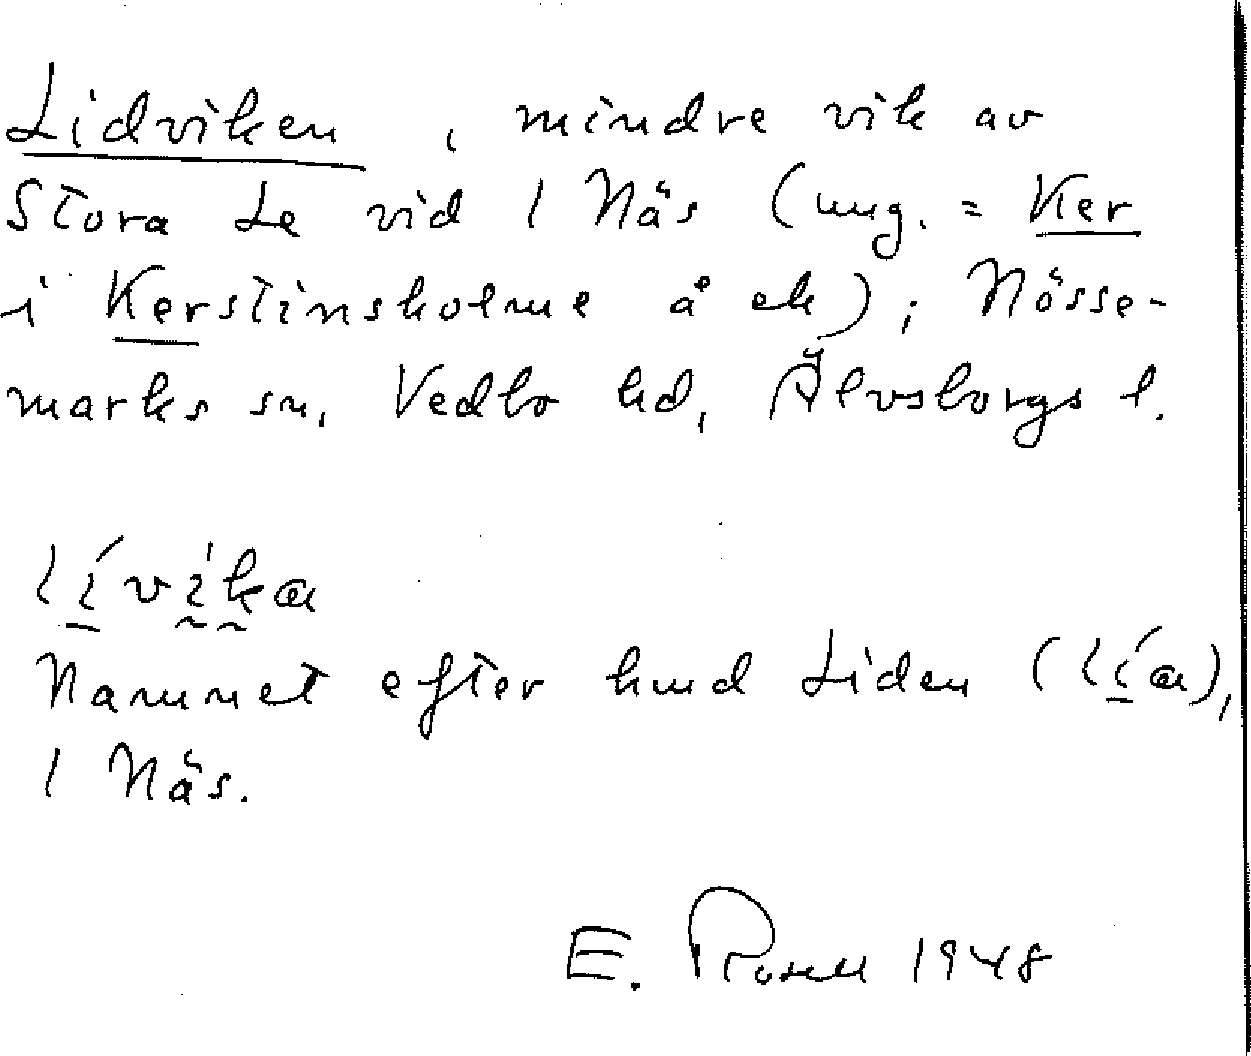 Lidviken, mindre vik av
Stora Le vid 1 Näs (ung. = Ker
i Kerstinsholme å ek); Nösse-
marks sn, Vedbo hd, Älvsborgs l.
lívika
Namnet efter hmd Liden (lía),
1 Näs.
E. Rosell 1948